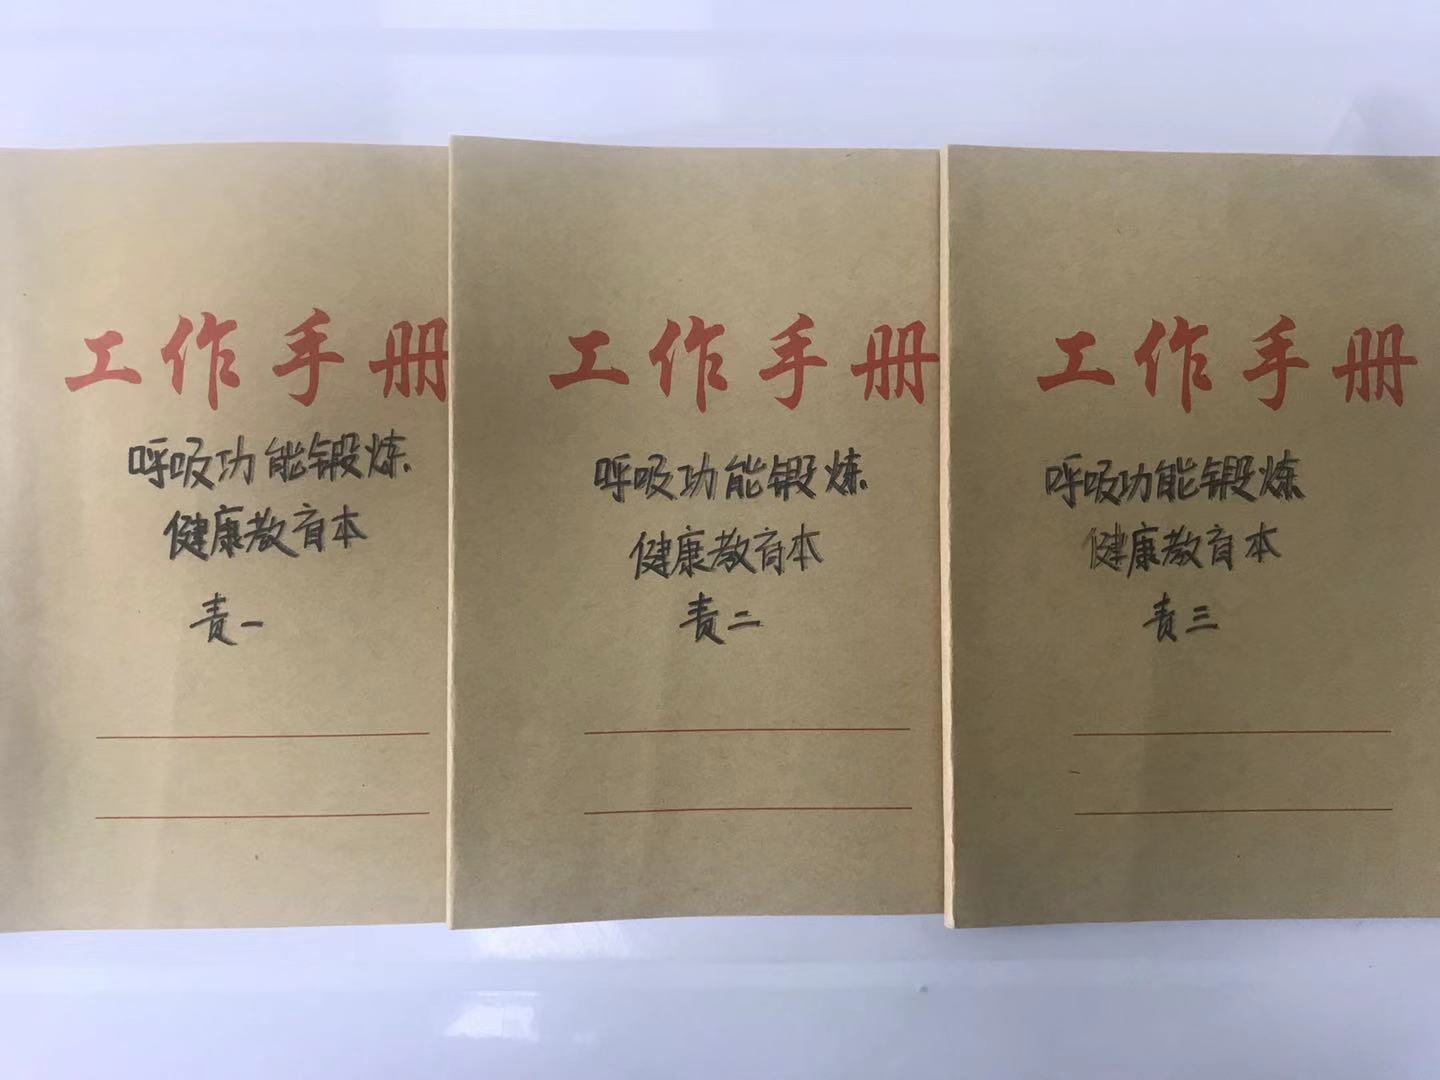 工作手册
呼吸功能锻炼
健康教育本
责一
工作手册
呼吸功能锻炼
健康教育本
责二
工作手册
呼吸功能锻炼
健康教育本
责三